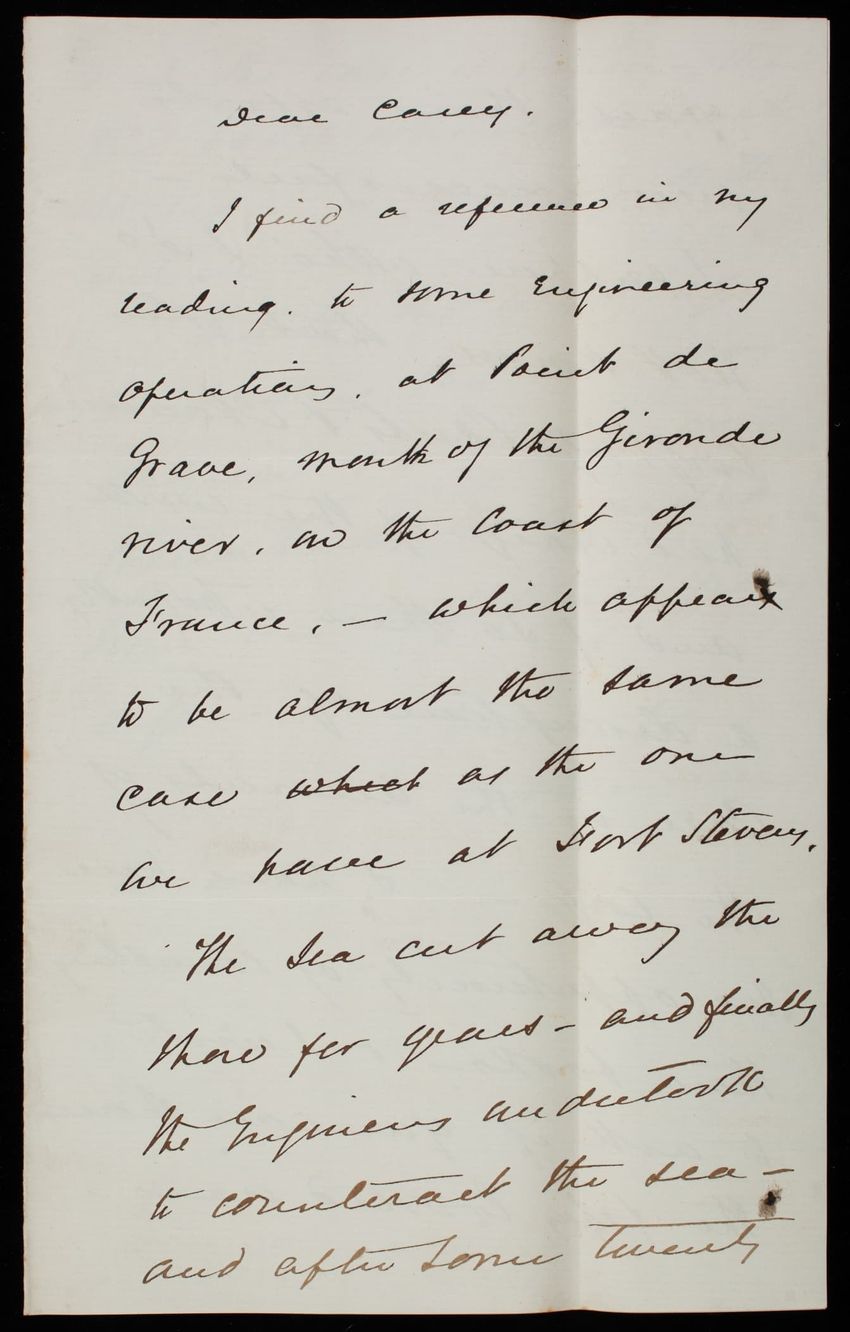 Dear Casey.
I find a reference in my
reading. to some Engineering
operations, at Point de
Grave, mouth of the Gironde
river, on the Coast of
France, — which appears
to be almost the same
case which as the one
we have at Fort Stevens.
The Sea cut away the
shore for years — and finally
the Engineers undertook
to counteract the sea —
and after some twenty